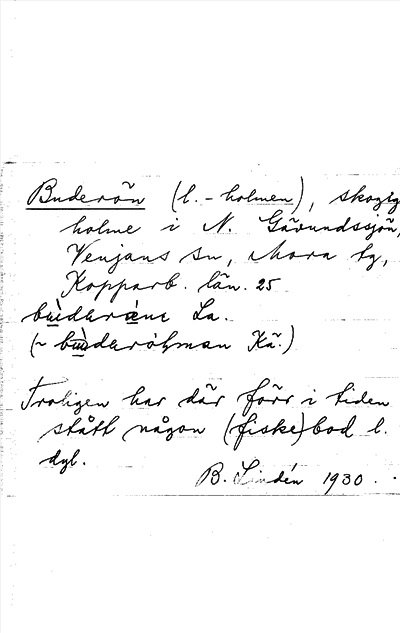 Buderön (l. - holmen), skogig
holme i N. Gävundssjön,
Venjans sn, Mora tg,
Kopparb. län. 25
La.
(~ Kä.)
Troligen har där förr i tiden
stått någon (fiske)bod l.
dyl.
B. Lindén 1930.